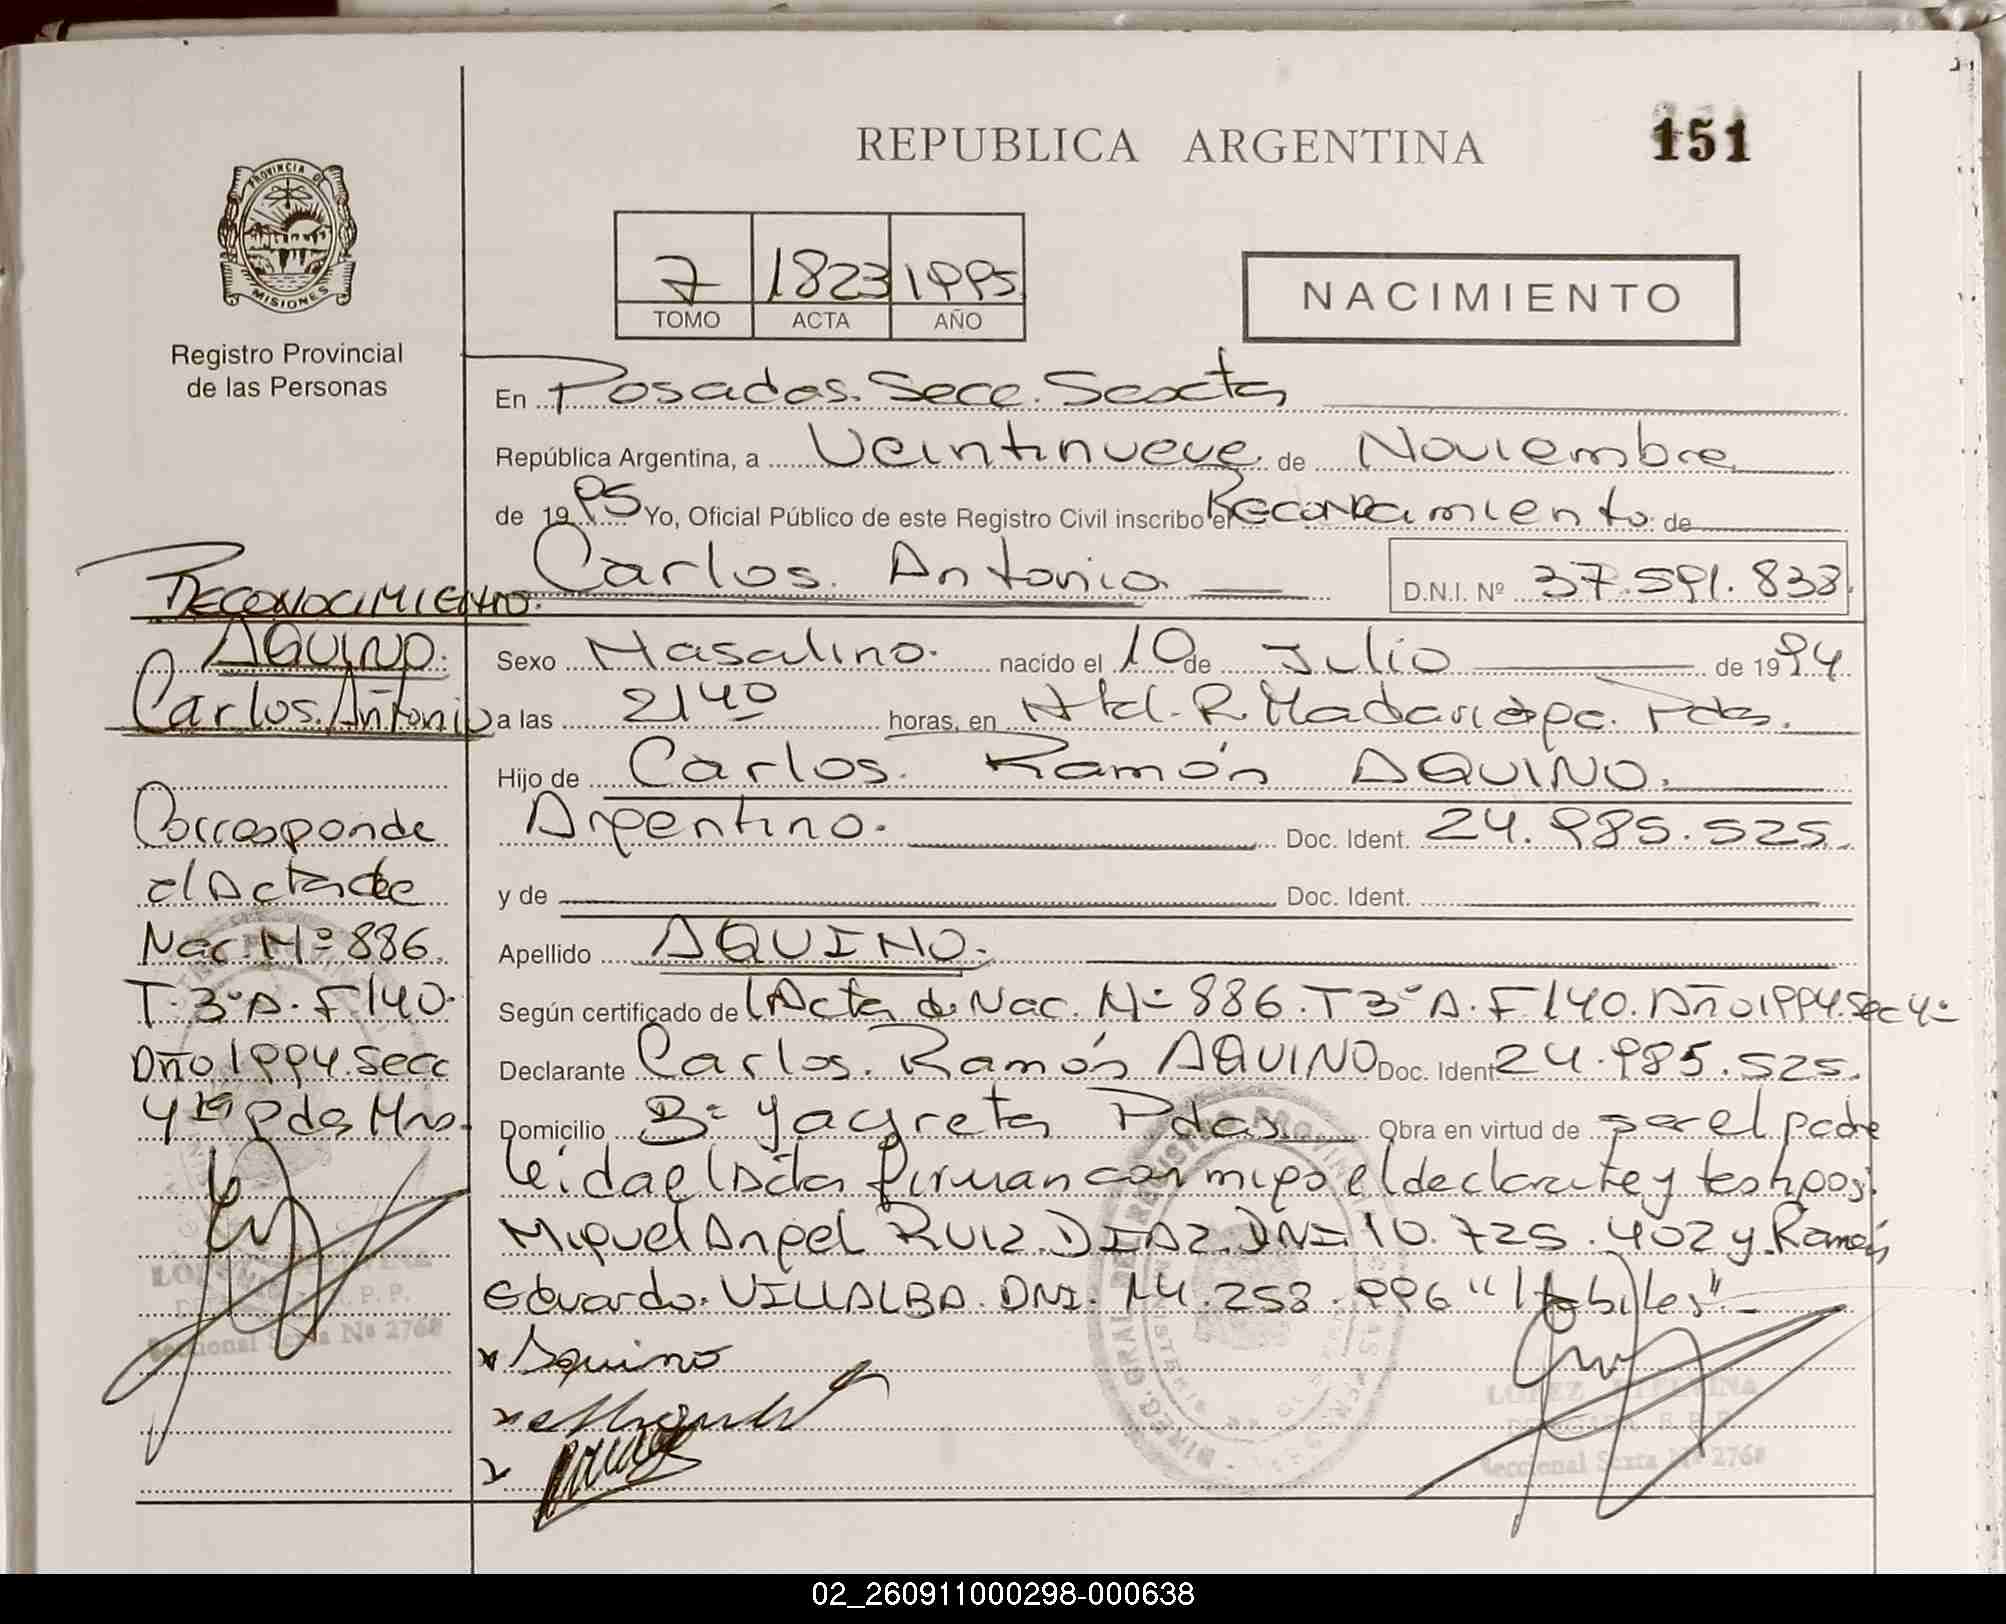 REPUBLICA ARGENTINA
151
PROVINCIA DE
MISIONES
Registro Provincial
de las Personas
7 1823 1995
TOMO ACTA AÑO
NACIMIENTO
En Posadas. Secc. Sexta
República Argentina, a Veintinueve de Noviembre
de 1995 Yo, Oficial Público de este Registro Civil inscribo el Reconocimiento de
Carlos. Antonio D.N.I. Nº 37.591.838.
Sexo Masculino. nacido el 10 de Julio de 1994
a las 2140 horas, en Htal. R. Madariaga. Pdas.
Hijo de Carlos. Ramón AQUINO.
Argentino. Doc. Ident. 24.985.525.
y de Doc. Ident.
Apellido AQUINO.
Según certificado de l Acta de Nac. Nº 886. T 3º A. F 140. Año 1994. Sec 4º
Declarante Carlos. Ramón AQUINO Doc. Ident 24.985.525.
Domicilio Bº Yacyreta Pdas. Obra en virtud de ser el padre
leida el Acta firman conmigo el declarante y testigos:
Miguel Angel RUIZ. DIAZ. DNI 10.725.402 y Ramón
Eduardo. VILLALBA. DNI. 14.258.996 "Habiles"
x Aquino
RECONOCIMIENTO.
AQUINO.
Carlos. Antonio
Corresponde
al Acta de
Nac. Nº 886.
T. 3º A. F 140.
Año 1994. Secc
4ta Pdas Mns.
LOPEZ
Seccional Sexta Nº 276
LOPEZ ETELVINA
Seccional Sexta Nº 276
02_260911000298-000638